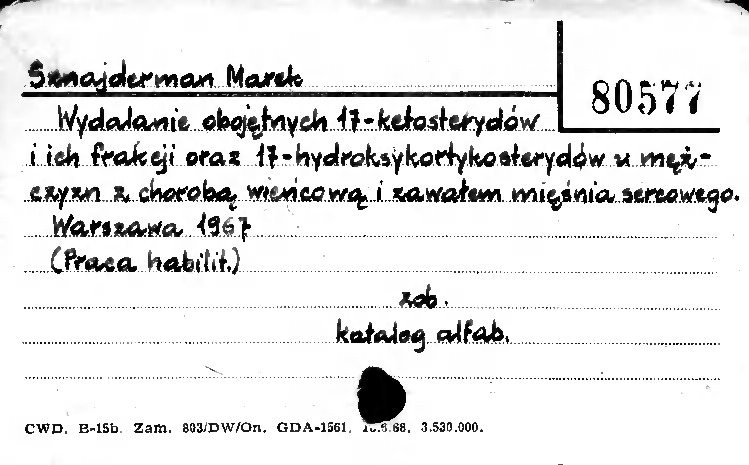 Sznajderman Marek
80577
Wydalanie obojętnych 17-ketosterydów
i ich frakcji oraz 17-hydroksykortykosterydów u męż-
czyzn z chorobą wieńcową i zawałem mięśnia sercowego.
Warszawa 1967
(Praca habilit.)
zob.
katalog alfab.
CWD. B-15b. Zam. 803/DW/On. GDA-1561, 3.530.000.